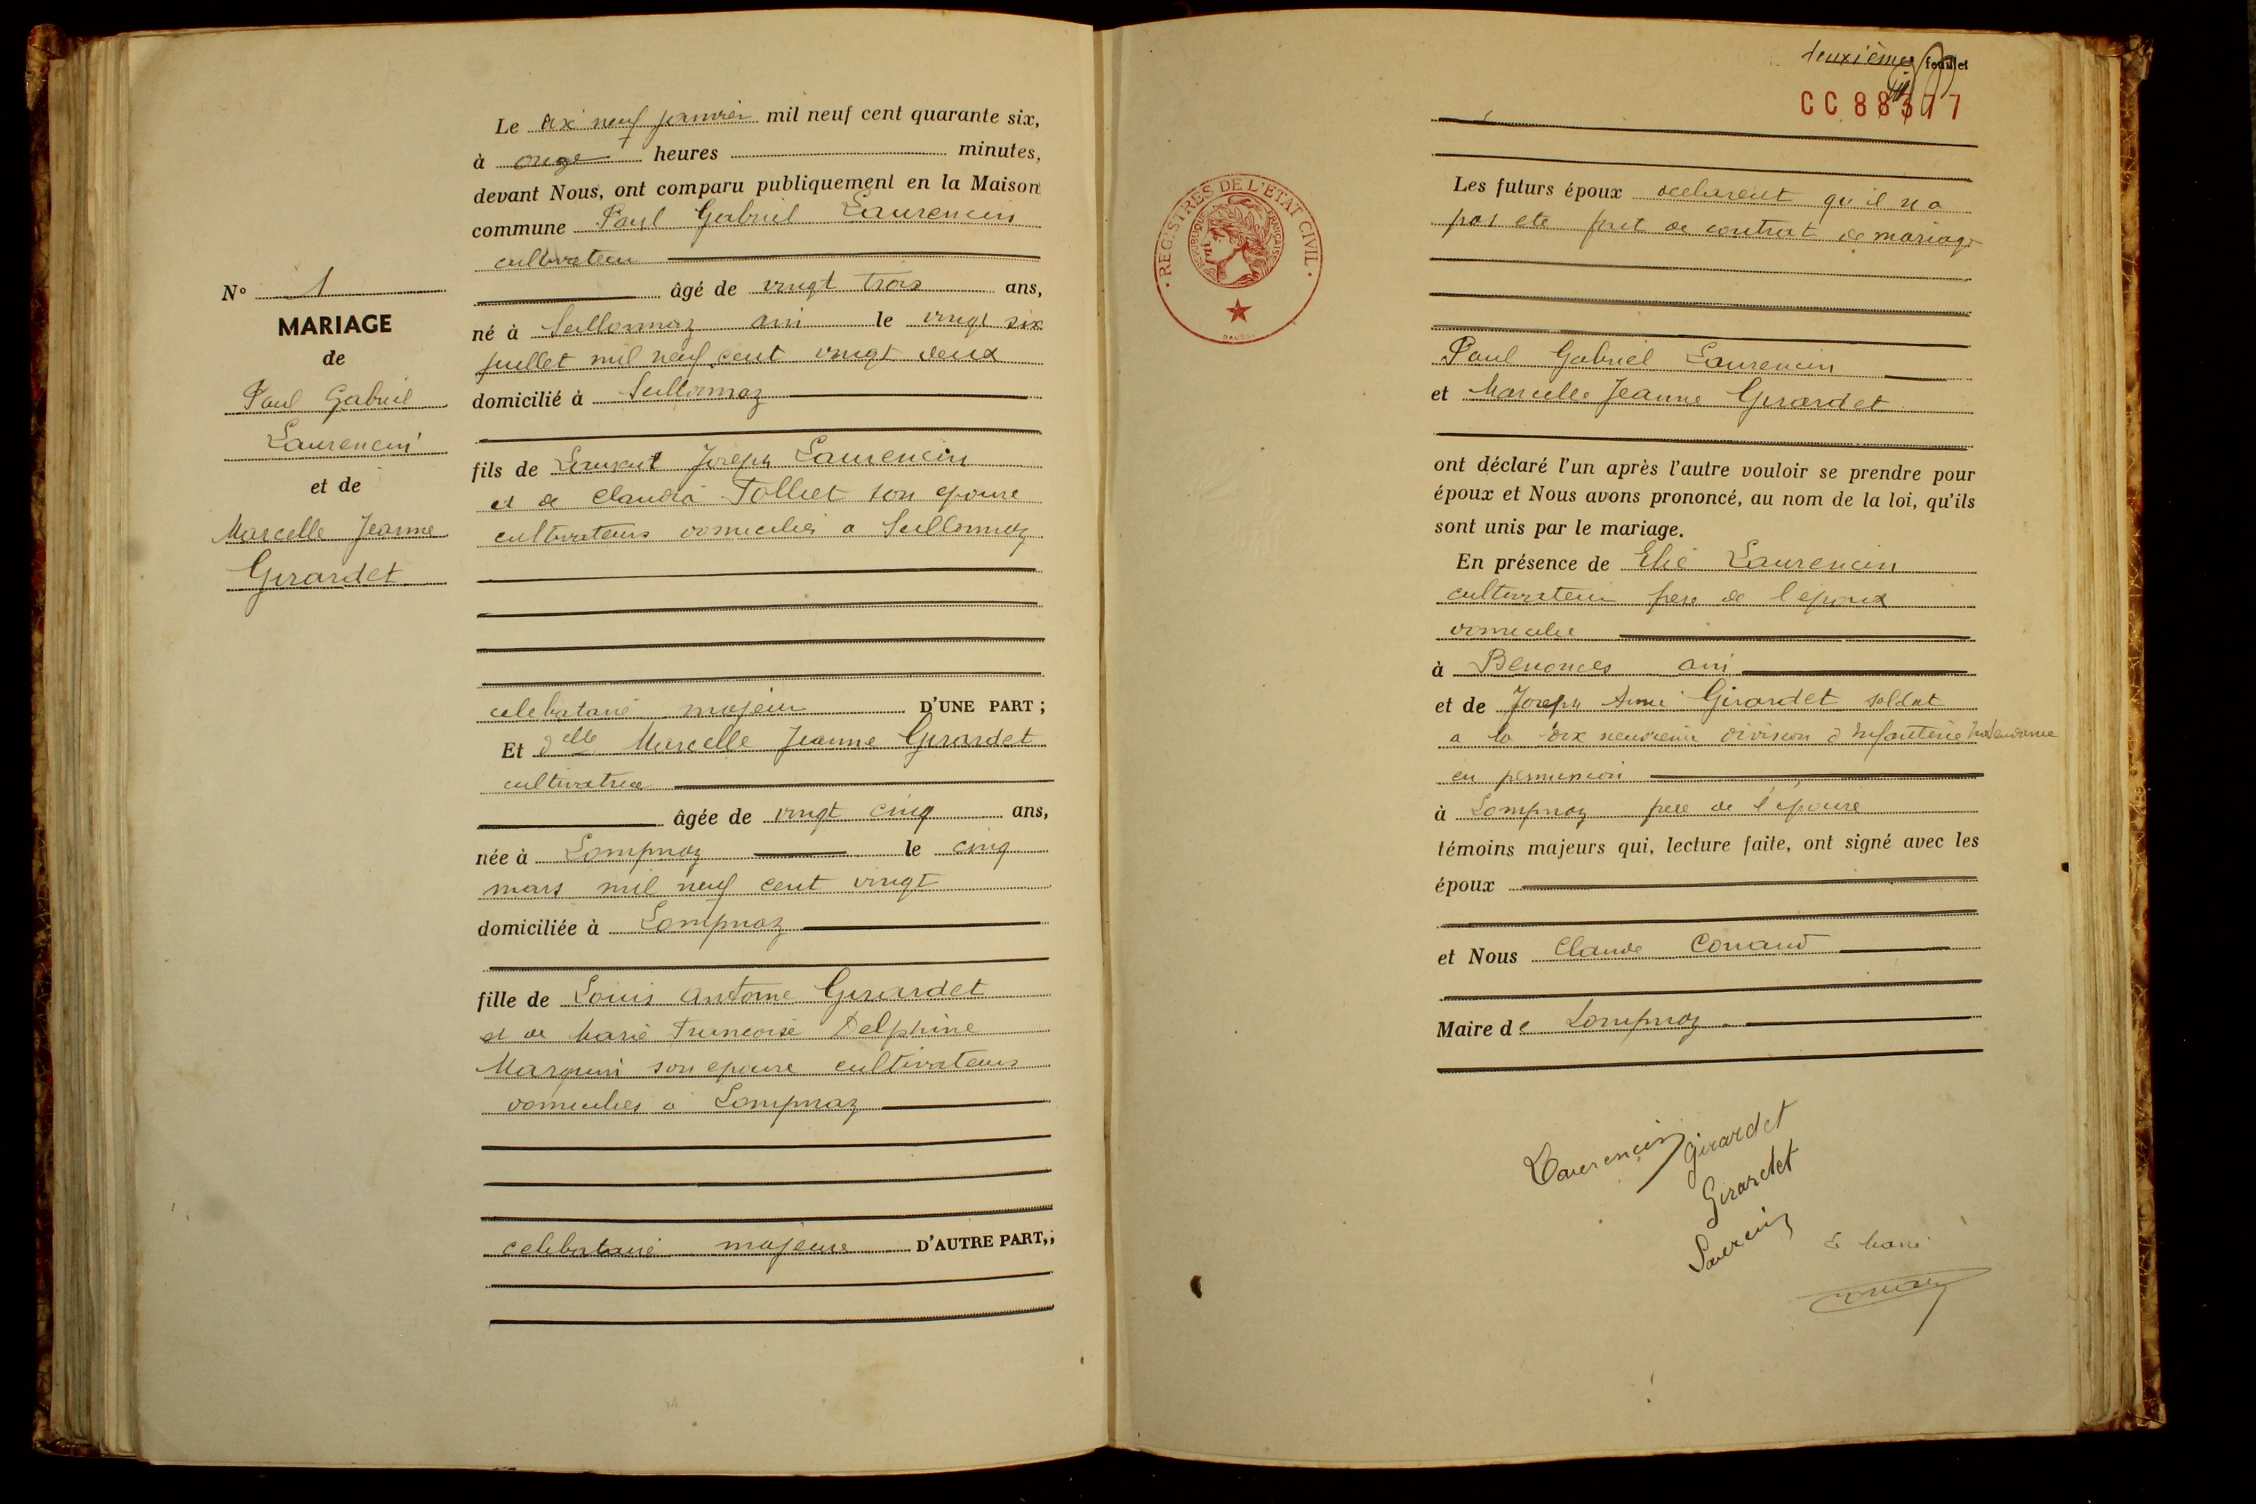 N° 1
MARIAGE
de
Paul Gabriel
Laurencin
et de
Marcelle Jeanne
Girardet
Le dix neuf janvier mil neuf cent quarante six,
à onze heures minutes,
devant Nous, ont comparu publiquement en la Maison
commune Paul Gabriel Laurencin
cultivateur
âgé de vingt trois ans,
né à Seillonnaz ain le vingt six
juillet mil neuf cent vingt deux
domicilié à Seillonnaz
fils de Laurent Joseph Laurencin
et de Claudia Tolliet son epouse
cultivateurs domicilies a Seillonnaz
celebataire majeur D'UNE PART ;
Et delle Marcelle Jeanne Girardet
cultivatrice
âgée de vingt cinq ans,
née à Lompnaz le cinq
mars mil neuf cent vingt
domiciliée à Lompnaz
fille de Louis Antoine Girardet
et de Marie Francoise Delphine
Marquin son epouse cultivateurs
domicilies a Lompnaz
celebataire majeure D'AUTRE PART,;
deuxième feuillet
CC 88377
REGISTRES DE L'ETAT CIVIL
REPUBLIQUE FRANÇAISE
Les futurs époux declarent qu'il n a
pas ete fait de contrat de mariage
Paul Gabriel Laurencin
et Marcelle Jeanne Girardet
ont déclaré l'un après l'autre vouloir se prendre pour
époux et Nous avons prononcé, au nom de la loi, qu'ils
sont unis par le mariage.
En présence de Elie Laurencin
cultivateur frere de l epoux
domicilie
à Benonces ain
et de Joseph Aimé Girardet soldat
a la dix neuvieme division d Infanterie
en permission
à Lompnaz frere de l'epouse
témoins majeurs qui, lecture faite, ont signé avec les
époux
et Nous Claude Conand
Maire de Lompnaz
Laurencin Girardet
Girardet
Laurencin
Le Maire
Conand